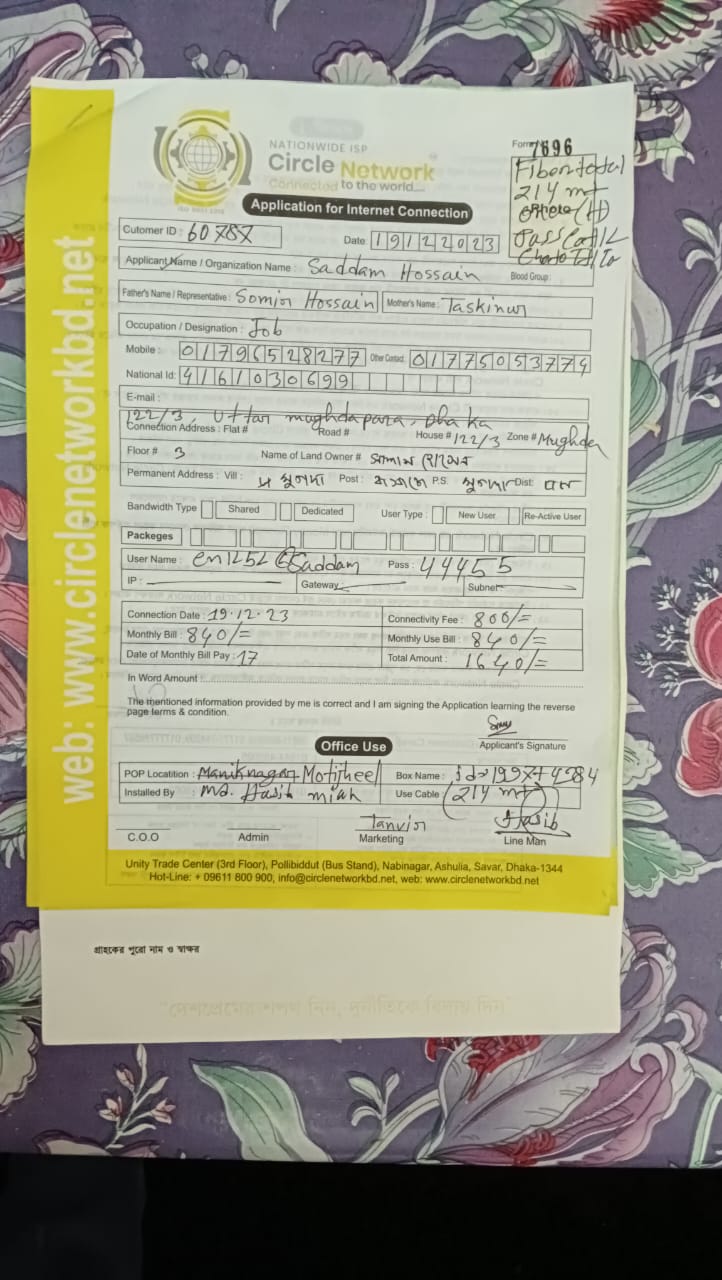 NATIONWIDE ISP
Circle Network
Connected to the world....
ISO 9001:2015
Form 7696
Fiber total
214 mt
Application for Internet Connection
Cutomer ID : 60787
Date 19122023
Applicant Name / Organization Name : Saddam Hossain
Blood Group:
Father's Name / Representative : Somir Hossain
Mother's Name : Taskinur
Occupation / Designation : Job
Mobile : 01796528277 Other Contact: 01775053774
National Id: 4161030699
E-mail :
122/3, Uttar mughdapara, Dhaka
Connection Address : Flat # Road # House # 122/3 Zone # Mughda
Floor # 3 Name of Land Owner #
Permanent Address : Vill : Post : P.S. মুগদা Dist:
Bandwidth Type Shared Dedicated User Type : New User Re-Active User
Packeges
User Name : Saddam Pass : 44455
IP : Gateway : Subnet :
Connection Date : 19.12.23 Connectivity Fee : 800/=
Monthly Bill : 840/= Monthly Use Bill : 840/=
Date of Monthly Bill Pay : 17 Total Amount : 1640/=
In Word Amount :
The mentioned information provided by me is correct and I am signing the Application learning the reverse
page terms & condition.
Applicant's Signature
Office Use
POP Locatition : Maniknagar Motijheel Box Name :
Installed By : Md. Hasib miah Use Cable (214 mt)
Tanvir Hasib
C.O.O Admin Marketing Line Man
Unity Trade Center (3rd Floor), Pollibiddut (Bus Stand), Nabinagar, Ashulia, Savar, Dhaka-1344
Hot-Line: + 09611 800 900, info@circlenetworkbd.net, web: www.circlenetworkbd.net
web: www.circlenetworkbd.net
গ্রাহকের পুরো নাম ও স্বাক্ষর